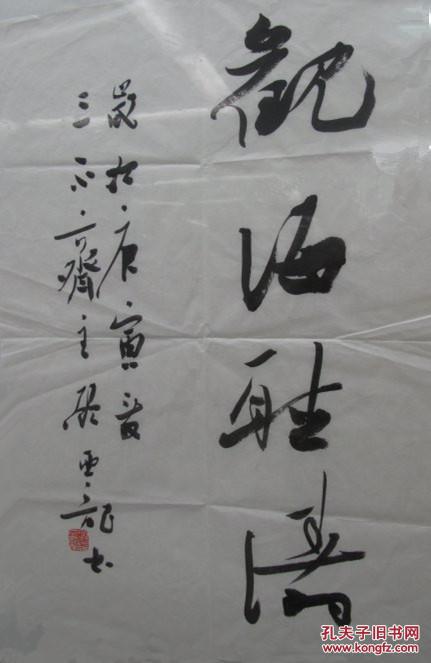 觀海聽濤
歲在庚寅夏
三不齋主殷雲龍书
孔夫子旧书网
www.kongfz.com